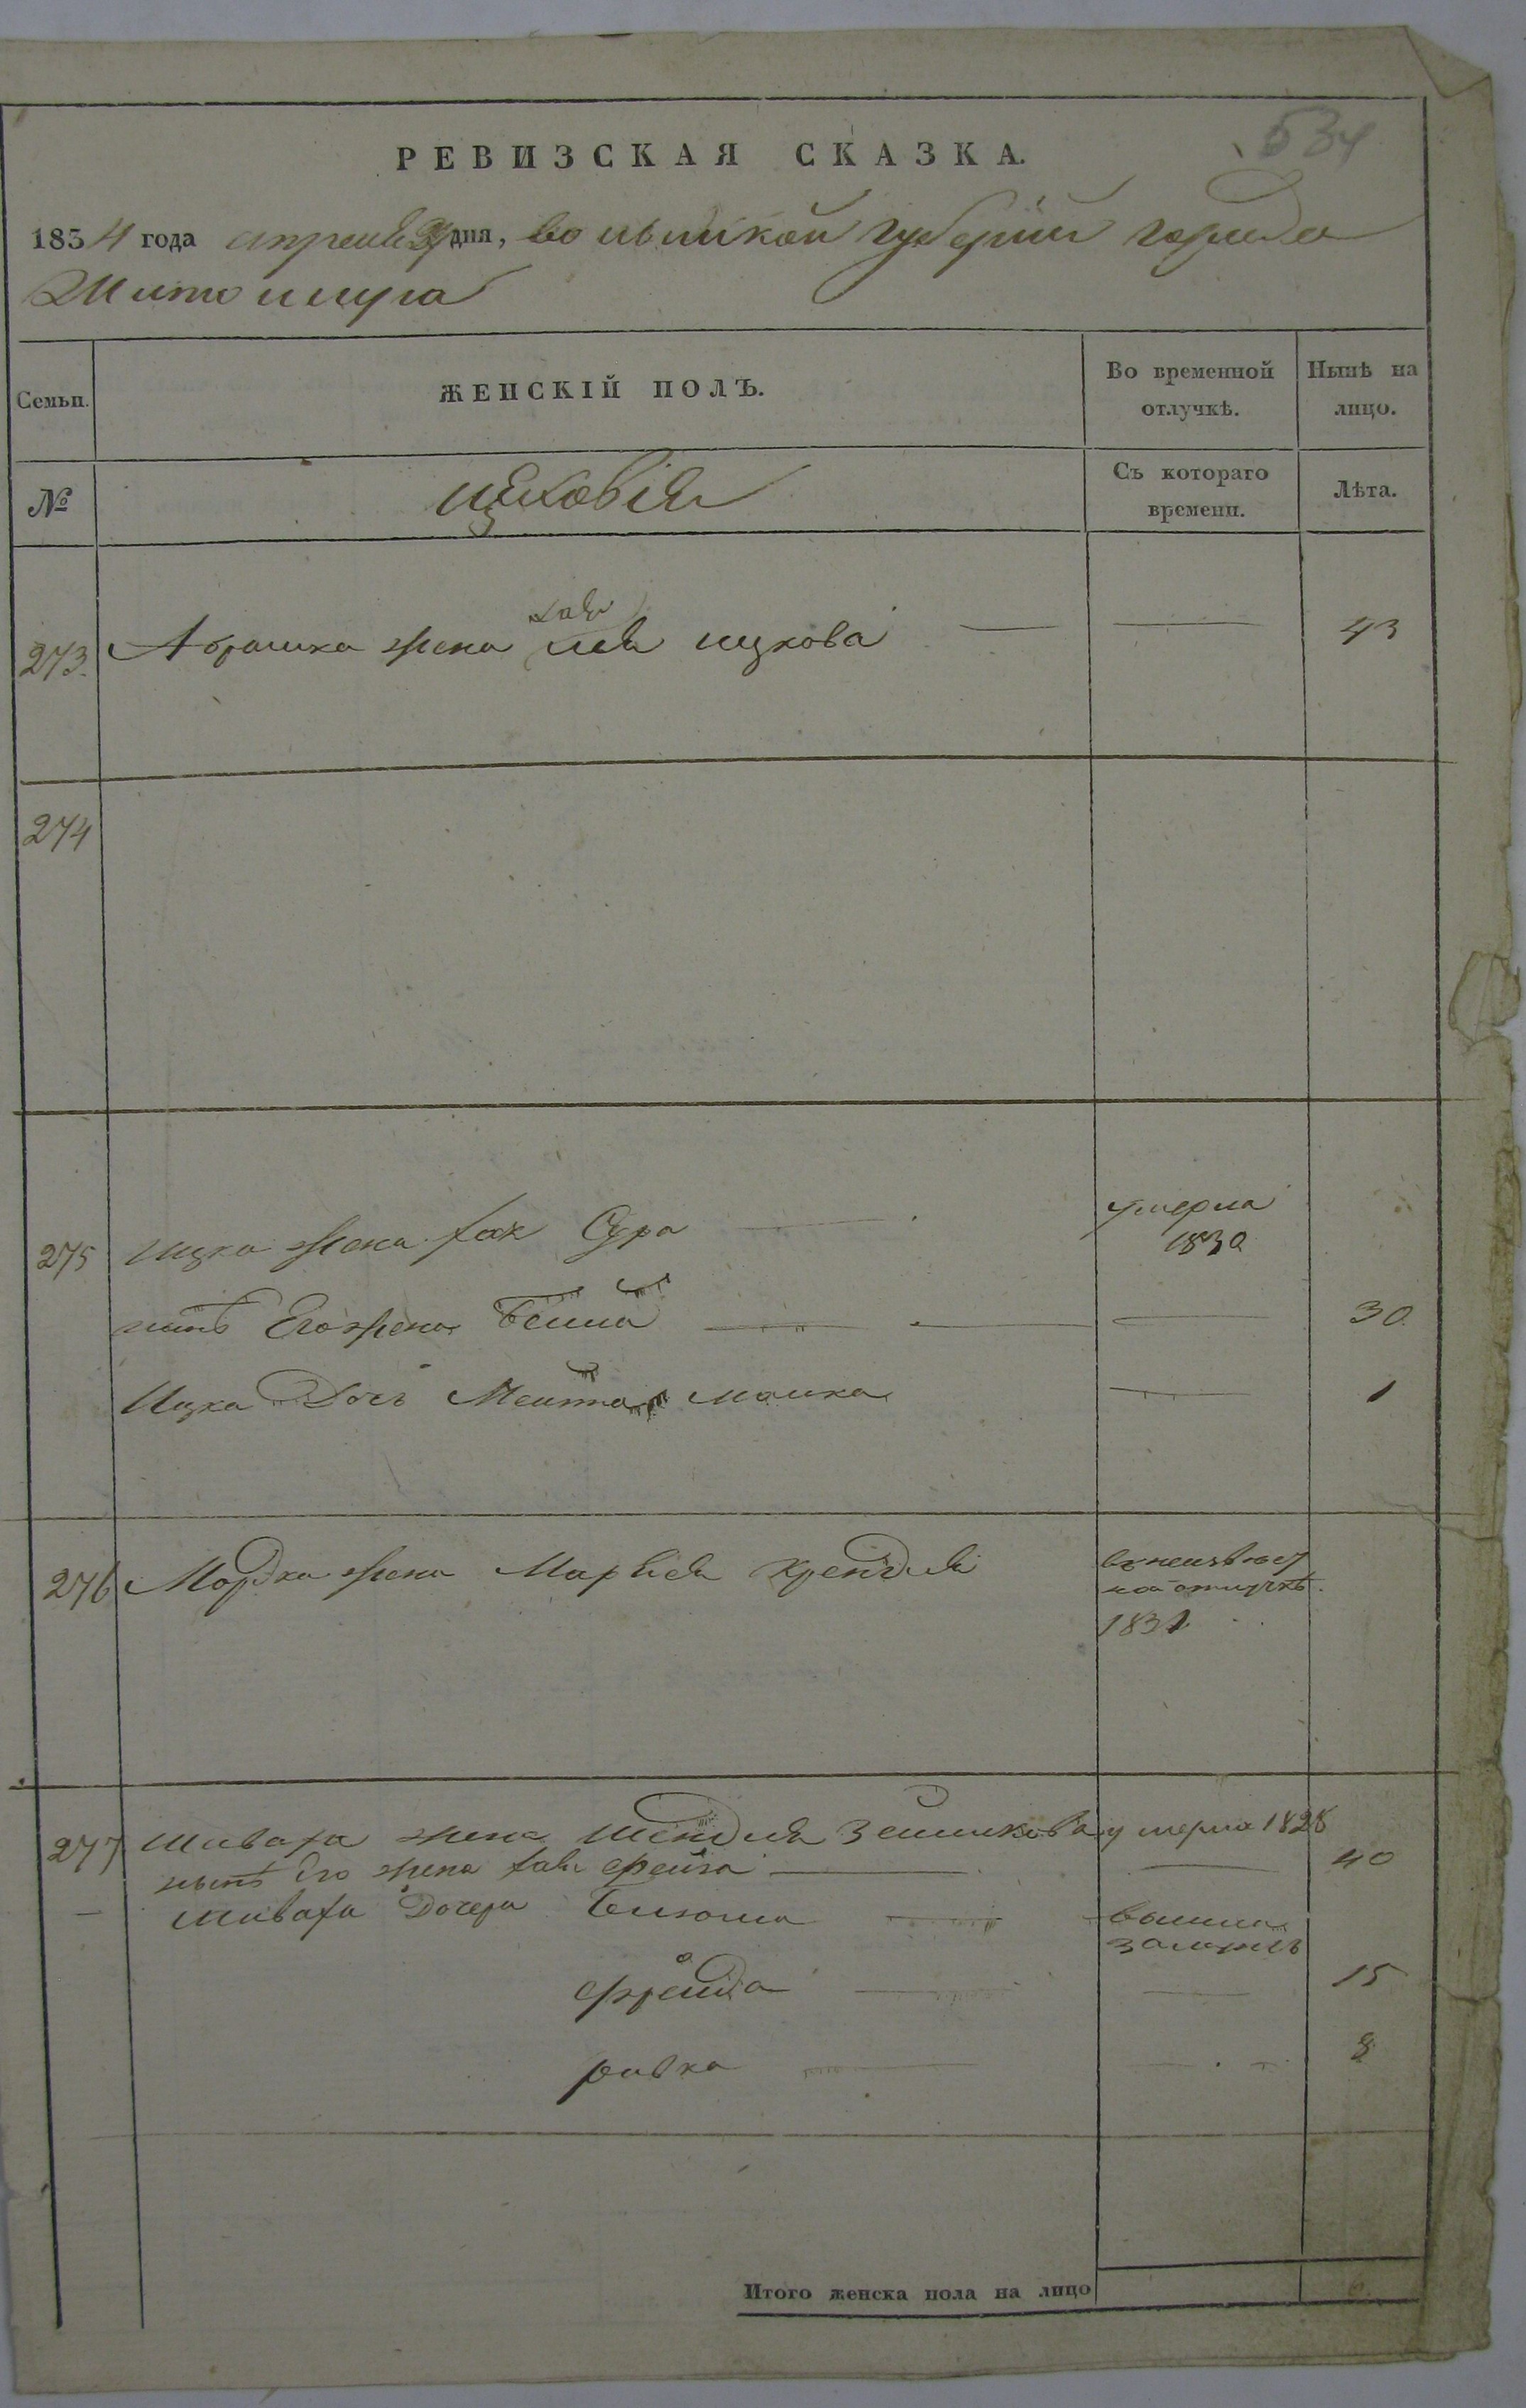 534
РЕВИЗСКАЯ СКАЗКА.
1834 года апреля дня, волынской губернии города
Житомира
Семьи. ЖЕНСКІЙ ПОЛЪ. Во временной отлучкѣ. Нынѣ на лицо.
№ Съ котораго времени. Лѣта.
273. Абрамка жена лея ицкова 43
274
275 Ицка жена Сура умерла 1830
нынѣ Его жена Бейла 30
Ицка Дочь 1
276 Мордка жена Маріея Крейдля въ неизвѣстной отлучкѣ. 1831
277 жена умерла 1828
нынѣ Его жена фейга 40
Дочери вышла замужъ
фрейда 15
ривка 8
Итого женска пола на лицо 6.